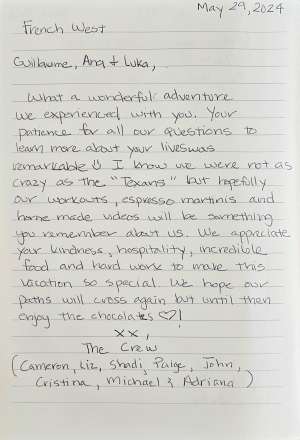 May 29, 2024
French West
Guillaume, Ana & Luka,
What a wonderful adventure
we experienced with you. Your
patience for all our questions to
learn more about your lives was
remarkable ☺ I know we were not as
crazy as the "Texans" but hopefully
our workouts, espresso martinis and
home made videos will be something
you remember about us. We appreciate
your kindness, hospitality, incredible
food and hard work to make this
vacation so special. We hope our
paths will cross again but until then
enjoy the chocolates ♡!
xx,
The Crew
(Cameron, Liz, Shadi, Paige, John,
Cristina, Michael & Adriana)